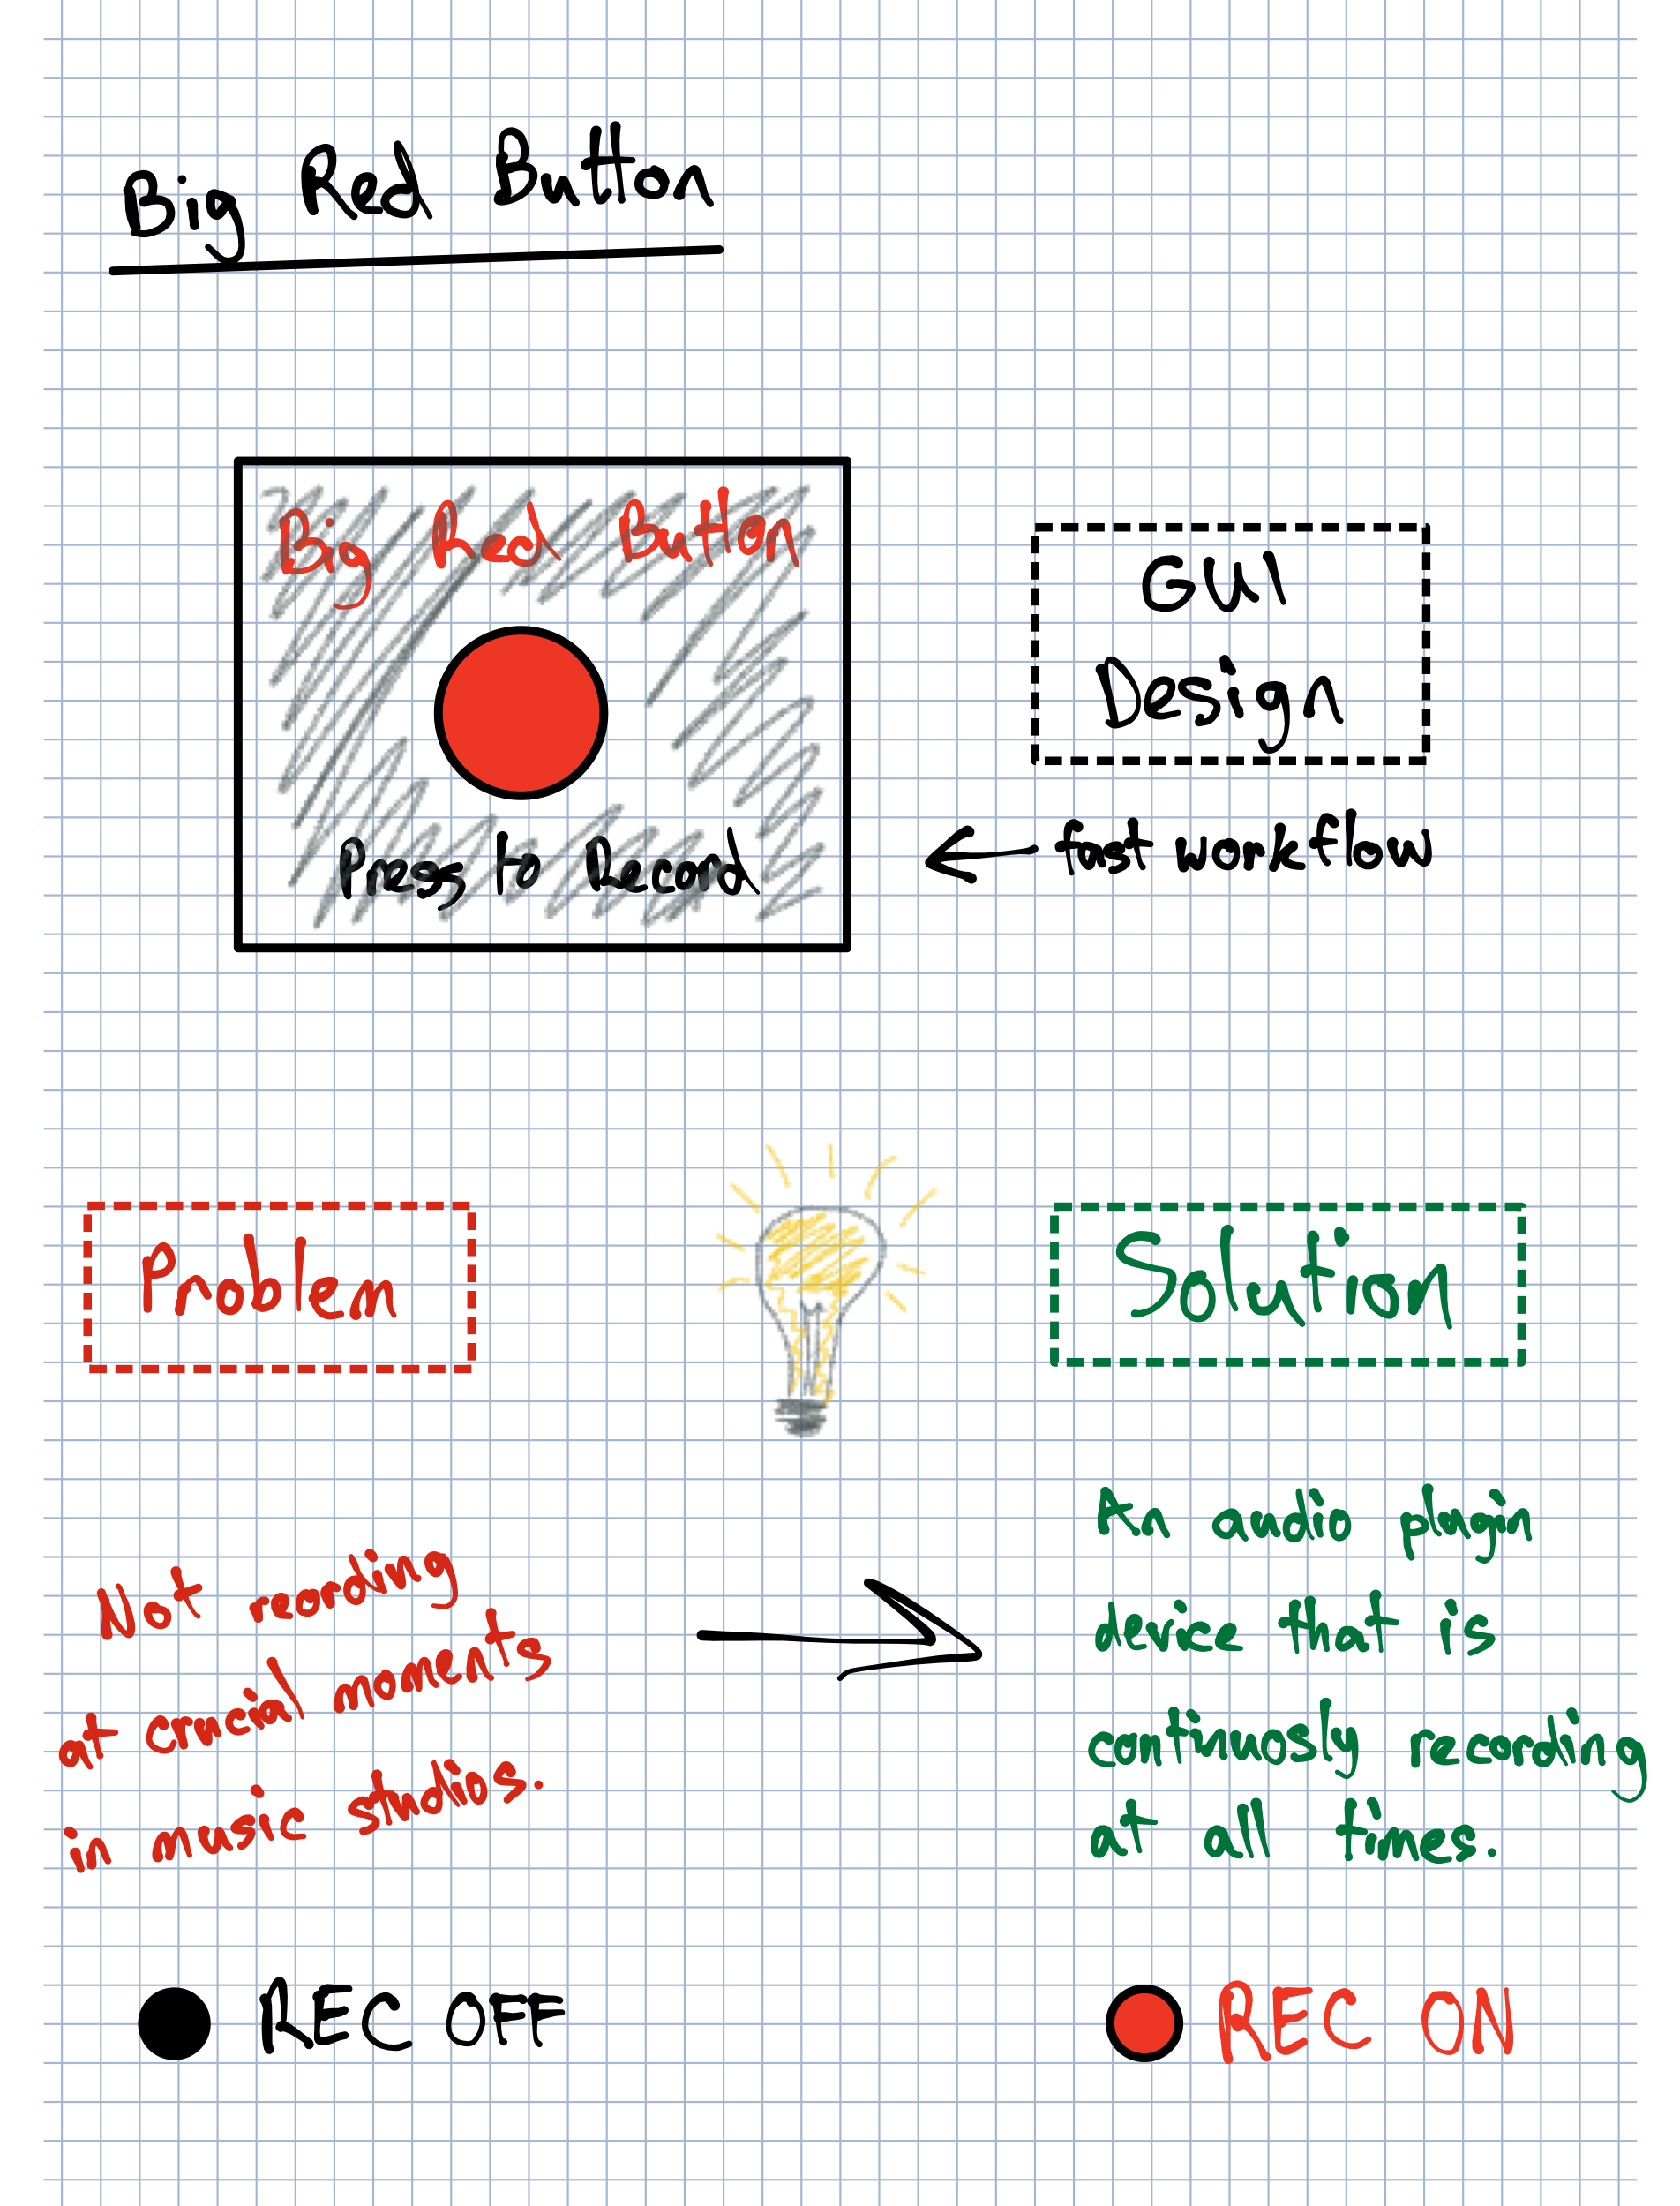 Big Red Button
Big Red Button
Press to Record
GUI
Design
fast workflow
Problem
Solution
Not reording
at crucial moments
in music studios.
An audio plugin
device that is
continuosly recording
at all times.
REC OFF
REC ON